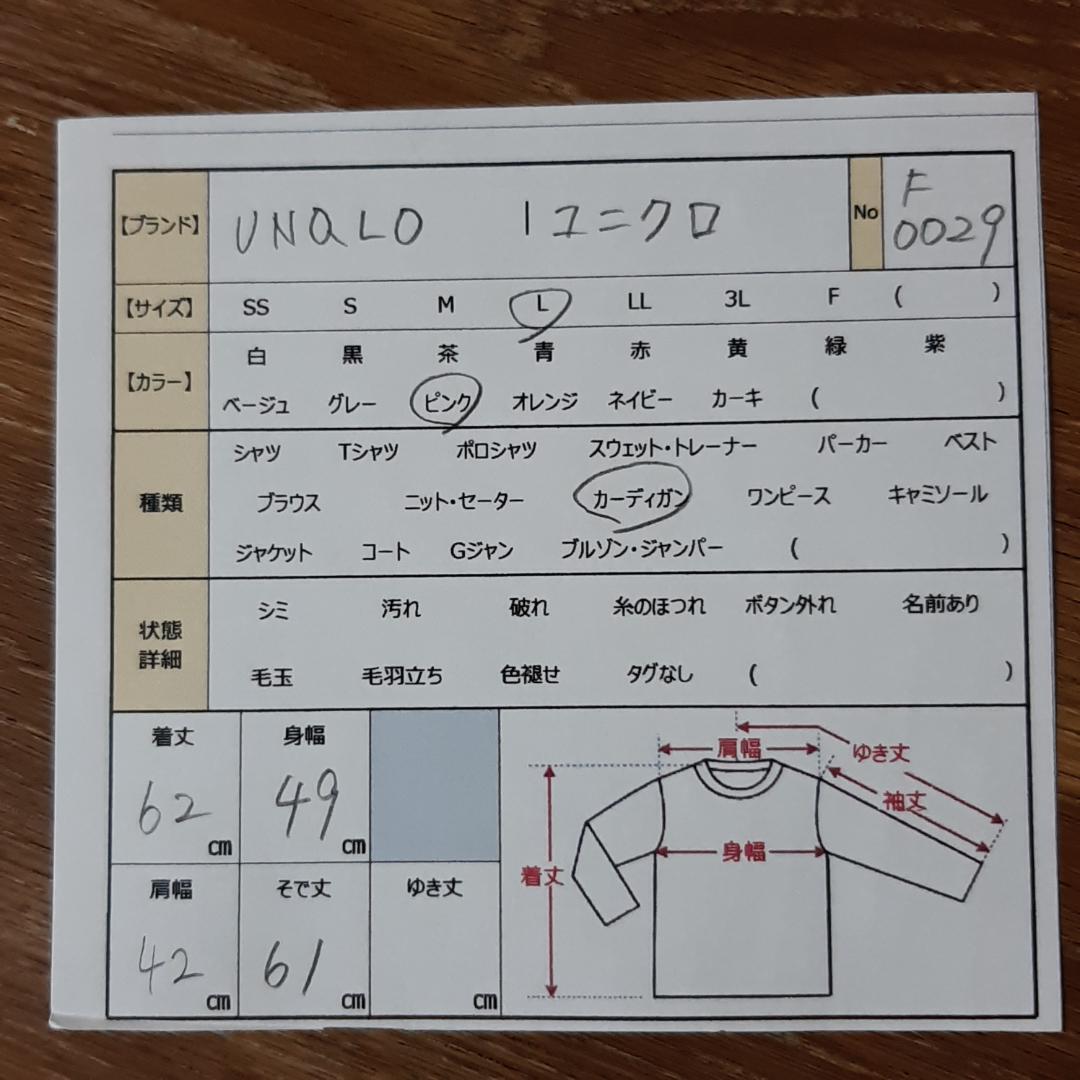 【ブランド】 UNQLO 1ユニクロ No F
0029
【サイズ】 SS S M L LL 3L F ( )
【カラー】 白 黒 茶 青 赤 黄 緑 紫
ベージュ グレー ピンク オレンジ ネイビー カーキ ( )
種類 シャツ Tシャツ ポロシャツ スウェット・トレーナー パーカー ベスト
ブラウス ニット・セーター カーディガン ワンピース キャミソール
ジャケット コート Gジャン ブルゾン・ジャンパー ( )
状態
詳細
シミ 汚れ 破れ 糸のほつれ ボタン外れ 名前あり
毛玉 毛羽立ち 色褪せ タグなし ( )
着丈 身幅
62 cm 49 cm
肩幅 そで丈 ゆき丈
42 cm 61 cm cm
肩幅 ゆき丈
袖丈
身幅
着丈